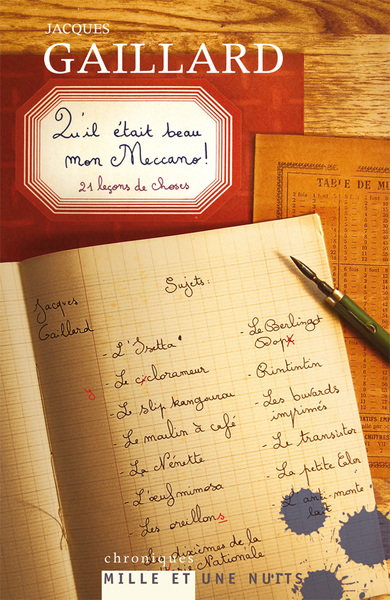 JACQUES
GAILLARD
Qu'il était beau
mon Meccano!
21 leçons de choses
TABLE DE MU
Jacques
Gaillard
Sujets:
- L'Isetta
y
- Le ciclorameur
- Le slip kangourou
- Le moulin à café
- La Nénette
- L'œuf mimosa
- Les oreillons
dixièmes de la
Nationale
- Le Berlingot
Dop
- Rintintin
- Les buvards
imprimés
- Le transistor
- La petite Eiler
- L'anti-monte-
lait
chroniques
MILLE ET UNE NUITS